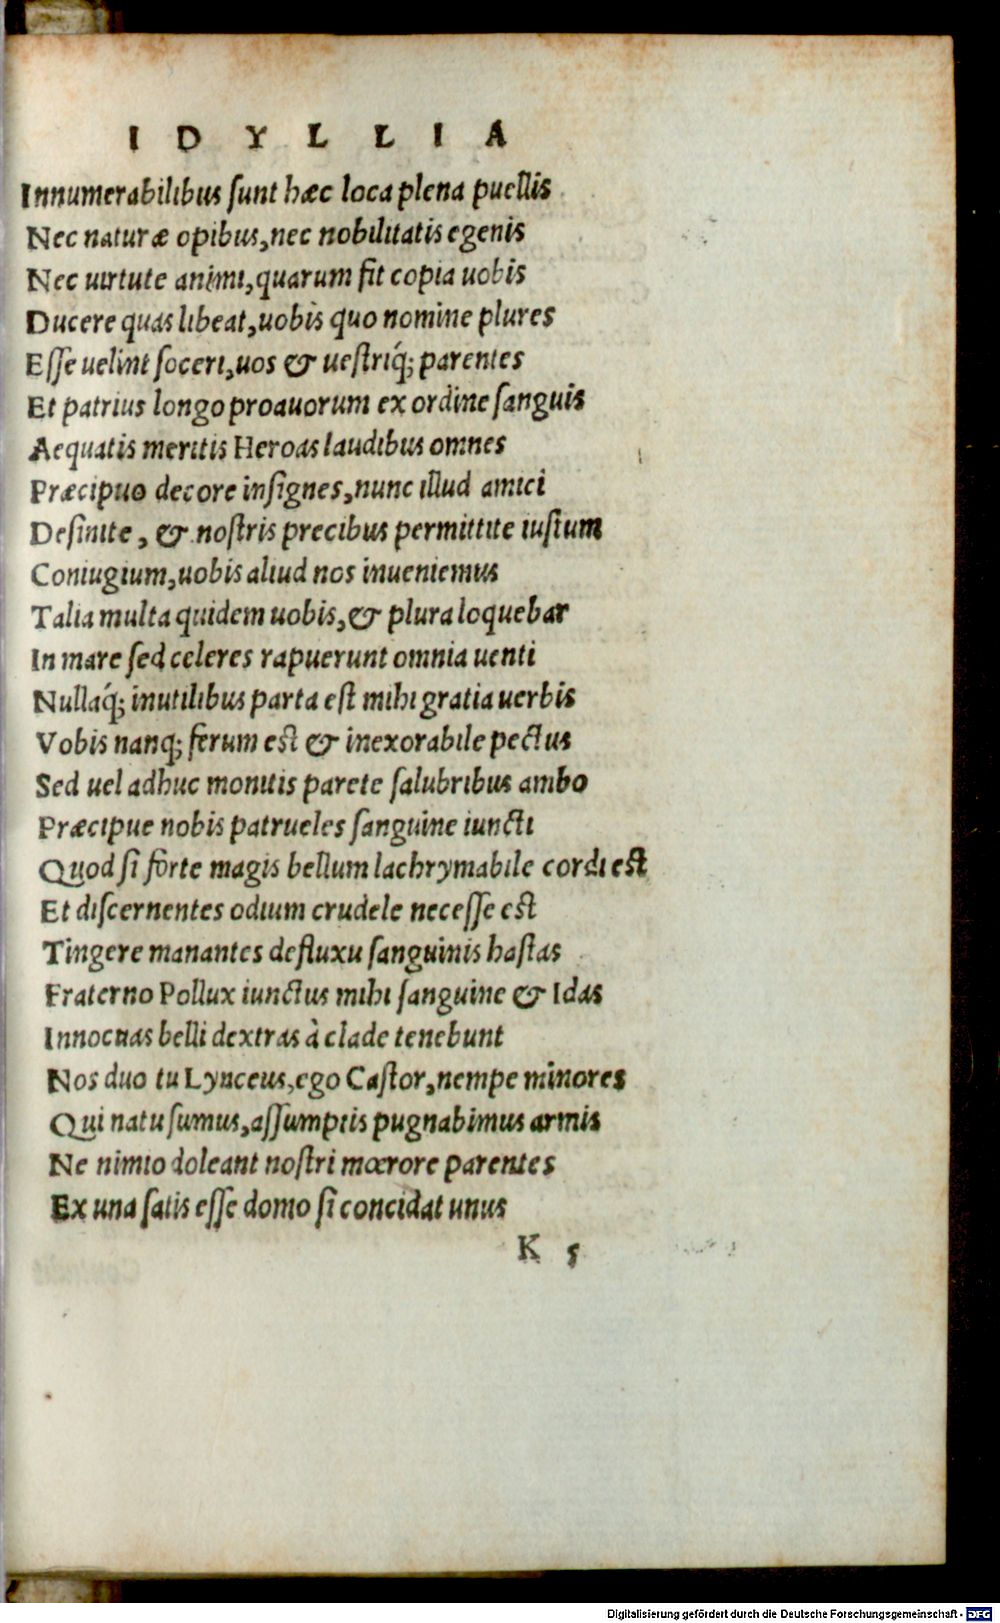 IDYLLIA
Innumerabilibus ſunt hæc loca plena puellis
Nec naturæ opibus, nec nobilitatis egenis
Nec uirtute animi, quarum fit copia uobis
Ducere quas libeat, uobis quo nomine plures
Eſſe uelint ſoceri, uos & ueſtriq́; parentes
Et patrius longo proauorum ex ordine ſanguis
Aequatis meritis Heroas laudibus omnes
Præcipuo decore inſignes, nunc illud amici
Deſinite, & noſtris precibus permittite iuſtum
Coniugium, uobis aliud nos inueniemus
Talia multa quidem uobis, & plura loquebar
In mare ſed celeres rapuerunt omnia uenti
Nullaq́; inutilibus parta eſt mihi gratia uerbis
Vobis nanq; ferum eſt & inexorabile pectus
Sed uel adhuc monitis parete ſalubribus ambo
Præcipue nobis patrueles ſanguine iuncti
Quod ſi forte magis bellum lachrymabile cordi eſt
Et diſcernentes odium crudele neceſſe eſt
Tingere manantes defluxu ſanguinis haſtas
Fraterno Pollux iunctus mihi ſanguine & Idas
Innocuas belli dextras à clade tenebunt
Nos duo tu Lynceus, ego Caſtor, nempe minores
Qui natu ſumus, aſſumptis pugnabimus armis
Ne nimio doleant noſtri mœrore parentes
Ex una ſatis eſſe domo ſi concidat unus
K 5
Digitalisierung gefördert durch die Deutsche Forschungsgemeinschaft - DFG